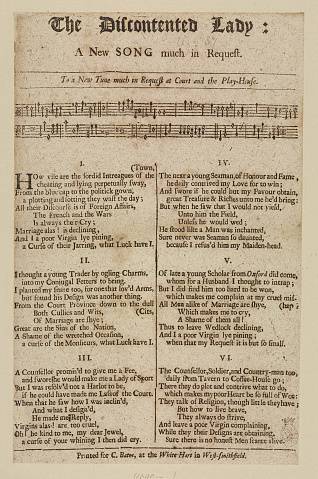 The Discontented Lady:
A New SONG much in Request.
To a New Tune much in Request at Court and the Play-House.
I.
(Town,
HOw vile are the sordid Intreagues of the
cheating and lying perpetually sway,
From the blue cap to the politick gown,
a plotting and sotting they wast the day;
All their Discourse is of Foreign Affairs,
The French and the Wars
Is always the Cry;
Marriage alas! is declining,
And I a poor Virgin lye pining,
a Curse of their Jarring, what Luck have I.
II.
I thought a young Trader by ogling Charms,
into my Conjugal Fetters to bring.
I planted my snare too, for one that lov'd Arms,
but found his Design was another thing.
From the Court Province down to the dull
(Cits,
Both Cullies and Wits,
Of Marriage are shye;
Great are the Sins of the Nation,
A Shame of the wretched Occasion,
a curse of the Monieurs, what Luck have I.
III.
A Counsellor promis'd to give me a Fee,
and swore he would make me a Lady of Sport
But I was resolv'd not a Harlot to be,
if he could have made me Lass of the Court.
When that he saw how I was inclin'd,
And what I design'd,
He made me Reply,
Virgins alas! are too cruel,
Oh! be kind to me, my dear Jewel,
a curse of your whining I then did cry.
IV.
The next a young Seaman, of Honour and Fame,
he daily contrived my Love for to win;
And swore if he could but my Favour obtain,
great Treasure & Riches unto me he'd bring:
But when he saw that I would not yield,
Unto him the Field,
Unless he would wed;
He stood like a Man was inchanted,
Sure never was Seaman so daunted,
because I refus'd him my Maiden-head.
V.
Of late a young Scholar from Oxford did come,
whom for a Husband I thought to intrap;
But I did find him too hard to be won,
which makes me complain at my cruel mis-
(hap;
All Men alike of Marriage are shye,
Which makes me to cry,
A Shame of them all!
Thus to leave Wedlock declining,
And I a poor Virgin lye pining;
when that my Request it is but so small.
VI.
The Counsellor, Soldier, and Country-men too,
daily from Tavern to Coffee-House go;
There they do plot and contrive what to do,
which makes my poor Heart be so full of Woe:
They talk of Religion, though little they have;
But how to live brave,
They always do strive,
And leave a poor Virgin complaining,
While they their Designs are obtaining,
Sure there is no honest Men left alive.
Printed for C. Bates, at the White-Hart in West-smithfield.